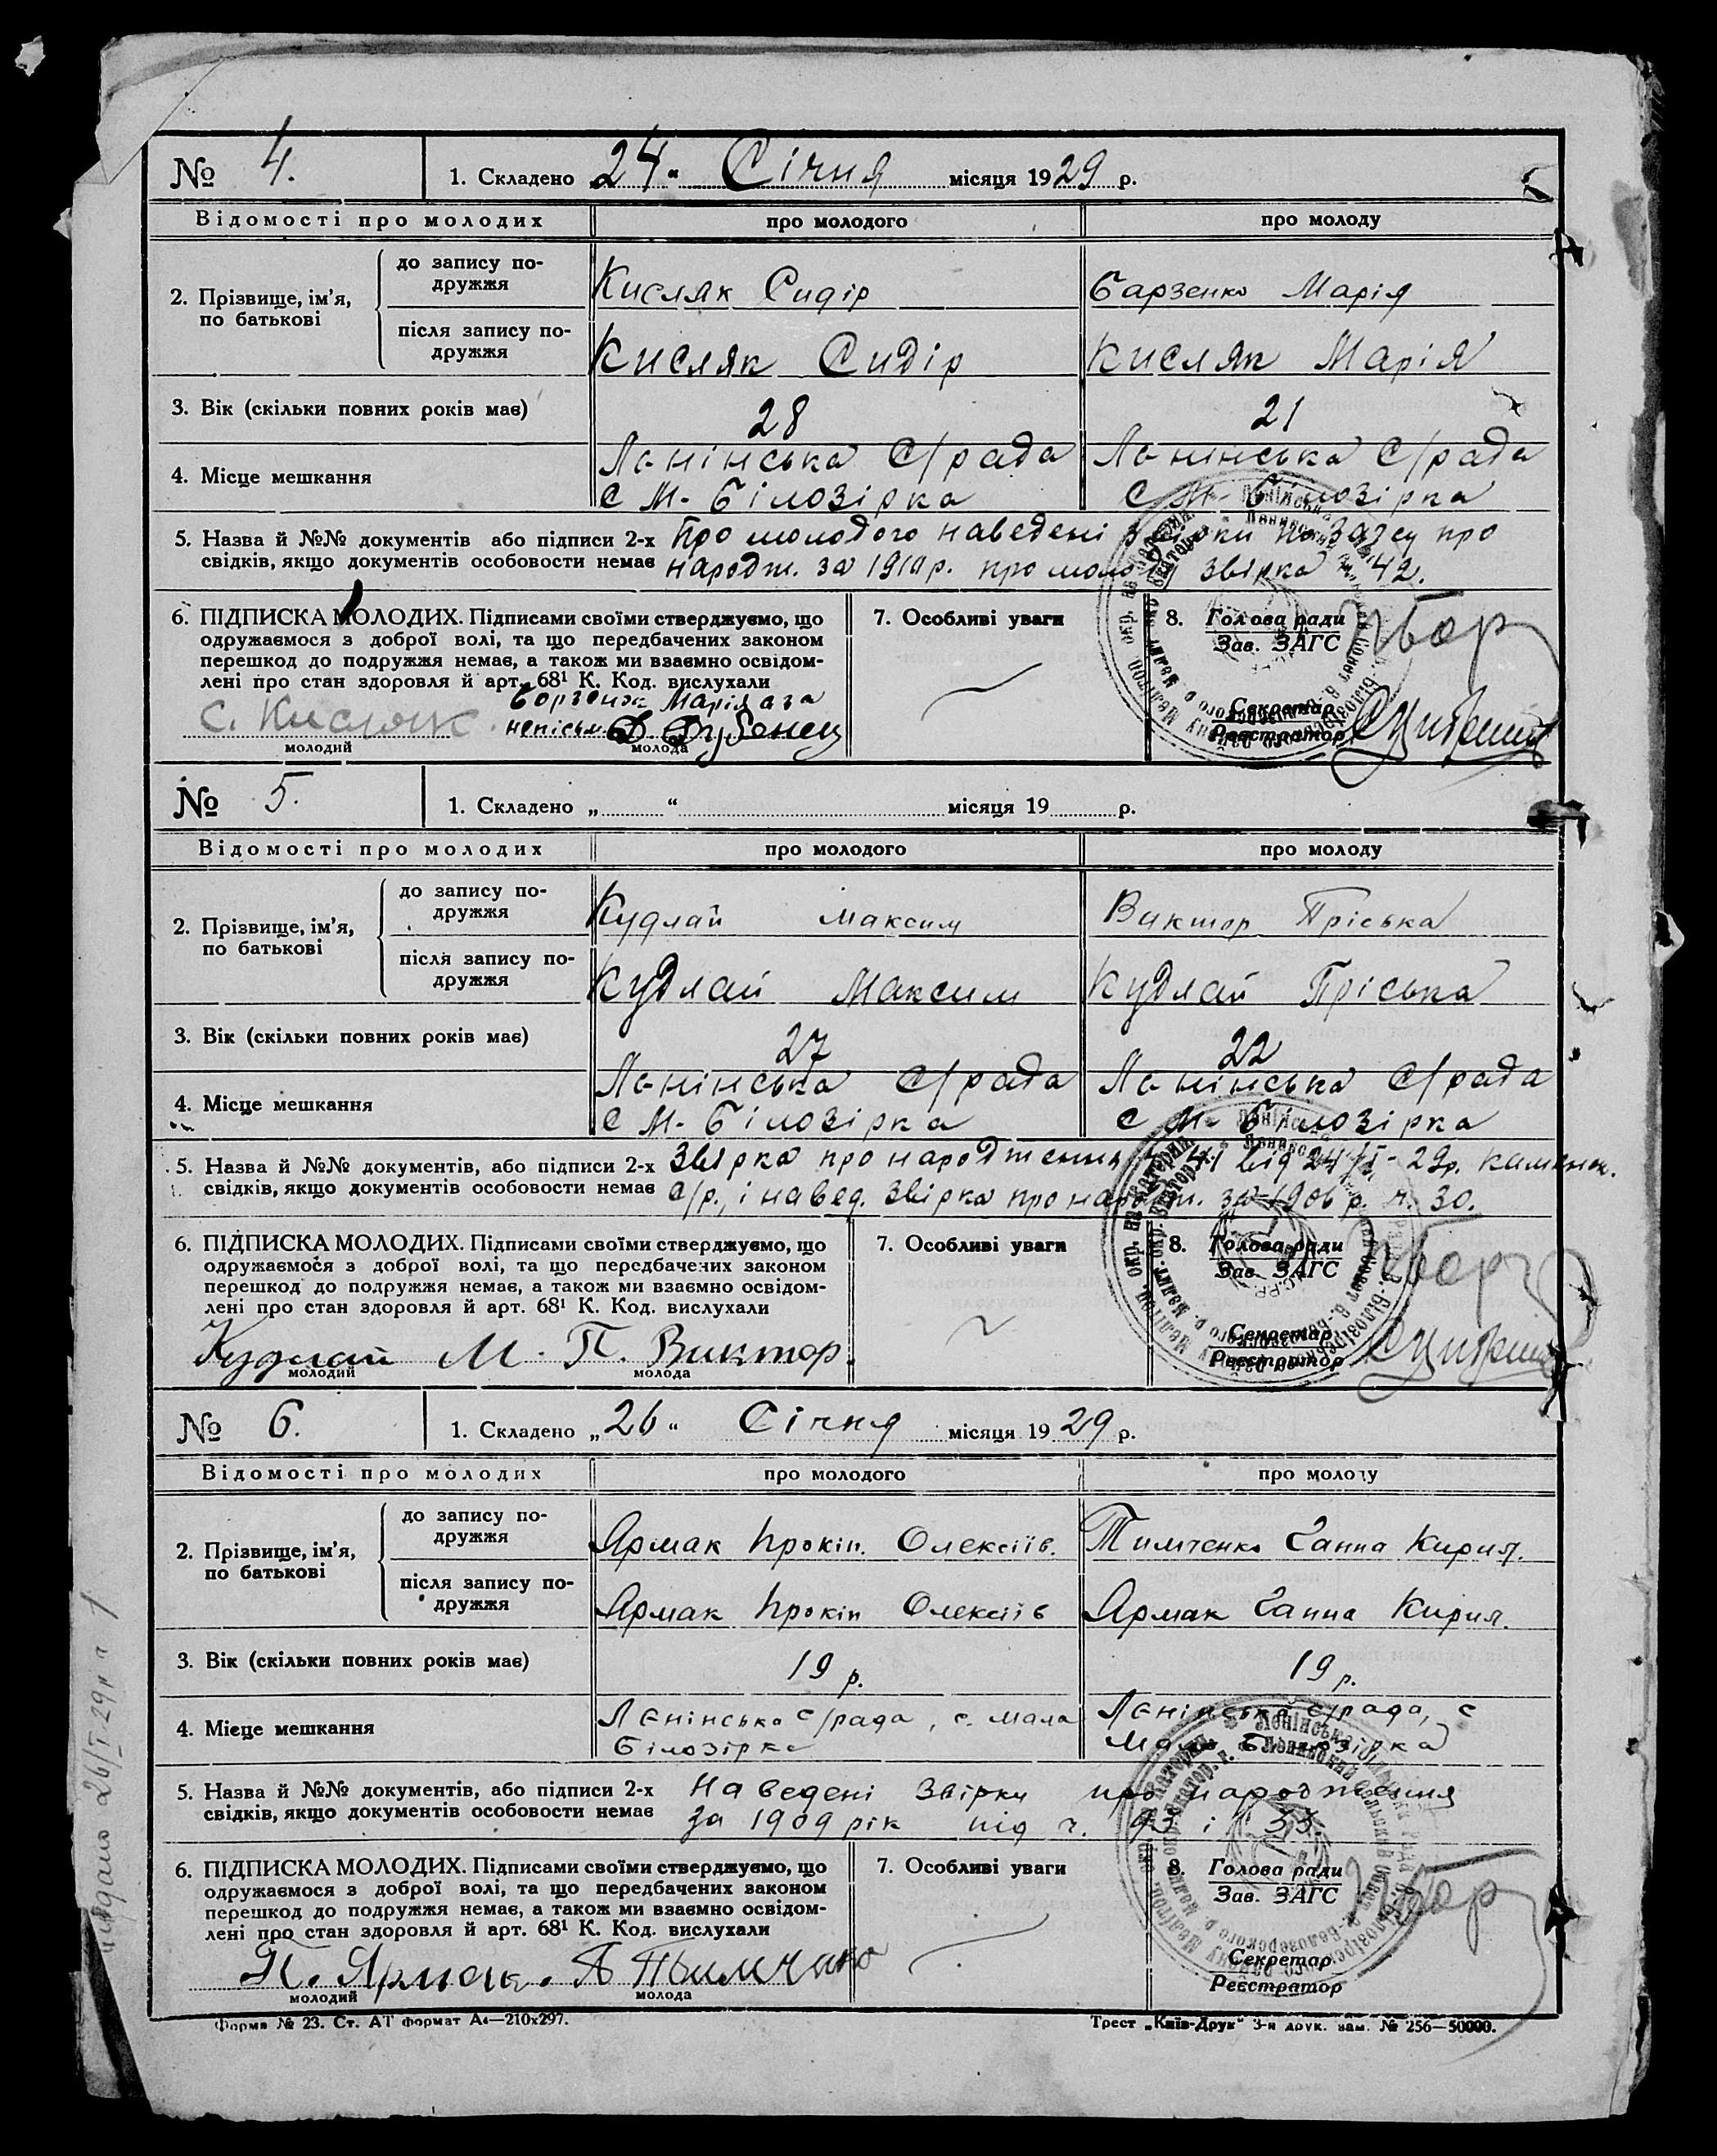 № 4. 1. Складено 24" Січня місяця 1929 р.
Відомості про молодих про молодого про молоду
2. Прізвище, ім'я, по батькові
до запису подружжя Кисляк Сидір Барзенко Марія
після запису подружжя Кисляк Сидір Кисляк Марія
3. Вік (скільки повних років має) 28 21
4. Місце мешкання Ленінська С/рада Ленінська С/рада
С М-Білозірка С М-Білозірка
5. Назва й №№ документів або підписи 2-х Про молодого наведені звірки по Загсу про
свідків, якщо документів особовости немає народж. за 1910р. про молоду звірка 42.
6. ПІДПИСКА МОЛОДИХ. Підписами своїми стверджуємо, що 7. Особливі уваги 8. Голова ради
одружаємося з доброї волі, та що передбачених законом Зав. ЗАГС
перешкод до подружжя немає, а також ми взаємно освідом-
лені про стан здоровля й арт. 68¹ К. Код. вислухали
Борзенк Марія а за Секретар
С. Кисляк неписьм. Д Дубенец Реєстратор
молодий молода
№ 5. 1. Складено „ “ місяця 19 р.
Відомості про молодих про молодого про молоду
2. Прізвище, ім'я, по батькові
до запису подружжя Кудлай Максим Виктор Пріська
після запису подружжя Кудлай Максим Кудлай Пріська
3. Вік (скільки повних років має) 27 22
4. Місце мешкання Ленінська С/рада Ленінська С/рада
С М-Білозірка С М-Білозірка
5. Назва й №№ документів, або підписи 2-х Звірка про народження 41 від 24/I-29р. каменск.
свідків, якщо документів особовости немає С/р., і навед. звірка про народж. за 1906 р. ч. 30.
6. ПІДПИСКА МОЛОДИХ. Підписами своїми стверджуємо, що 7. Особливі уваги 8. Голова ради
одружаємося з доброї волі, та що передбачених законом Зав. ЗАГС
перешкод до подружжя немає, а також ми взаємно освідом-
лені про стан здоровля й арт. 68¹ К. Код. вислухали Секретар
Кудлай М. П. Виктор. Реєстратор
молодий молода
№ 6. 1. Складено „26“ Січня місяця 1929 р.
Відомості про молодих про молодого про молоду
2. Прізвище, ім'я, по батькові
до запису подружжя Ярмак Прокіп. Олексіїв. Тимченко Ганна Кирил.
після запису подружжя Ярмак Прокіп Олексіїв Ярмак Ганна Кирил.
3. Вік (скільки повних років має) 19 р. 19 р.
4. Місце мешкання Ленінська с/рада, с. Мала Ленінська с/рада, с
Білозірка Мала Білозірка
5. Назва й №№ документів, або підписи 2-х Наведені звірки про народження
свідків, якщо документів особовости немає за 1909 рік під ч. 93 і 33.
6. ПІДПИСКА МОЛОДИХ. Підписами своїми стверджуємо, що 7. Особливі уваги 8. Голова ради
одружаємося з доброї волі, та що передбачених законом Зав. ЗАГС
перешкод до подружжя немає, а також ми взаємно освідом-
лені про стан здоровля й арт. 68¹ К. Код. вислухали Секретар
П. Ярмак. Реєстратор
молодий молода
Форма № 23. Ст. АТ формат А₄—210х297. Трест „Київ-Друк“ 3-я друк. зам. № 256—50000.
26/I-29р